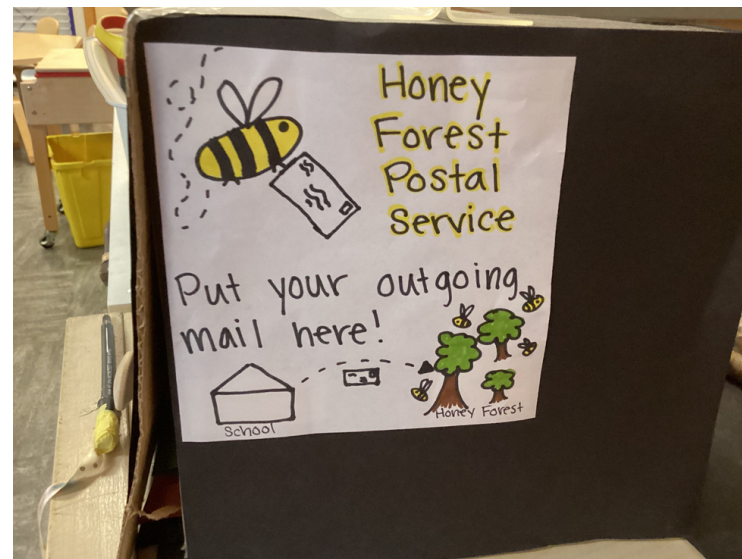 Honey
Forest
Postal
Service
Put your outgoing
mail here!
School
Honey Forest